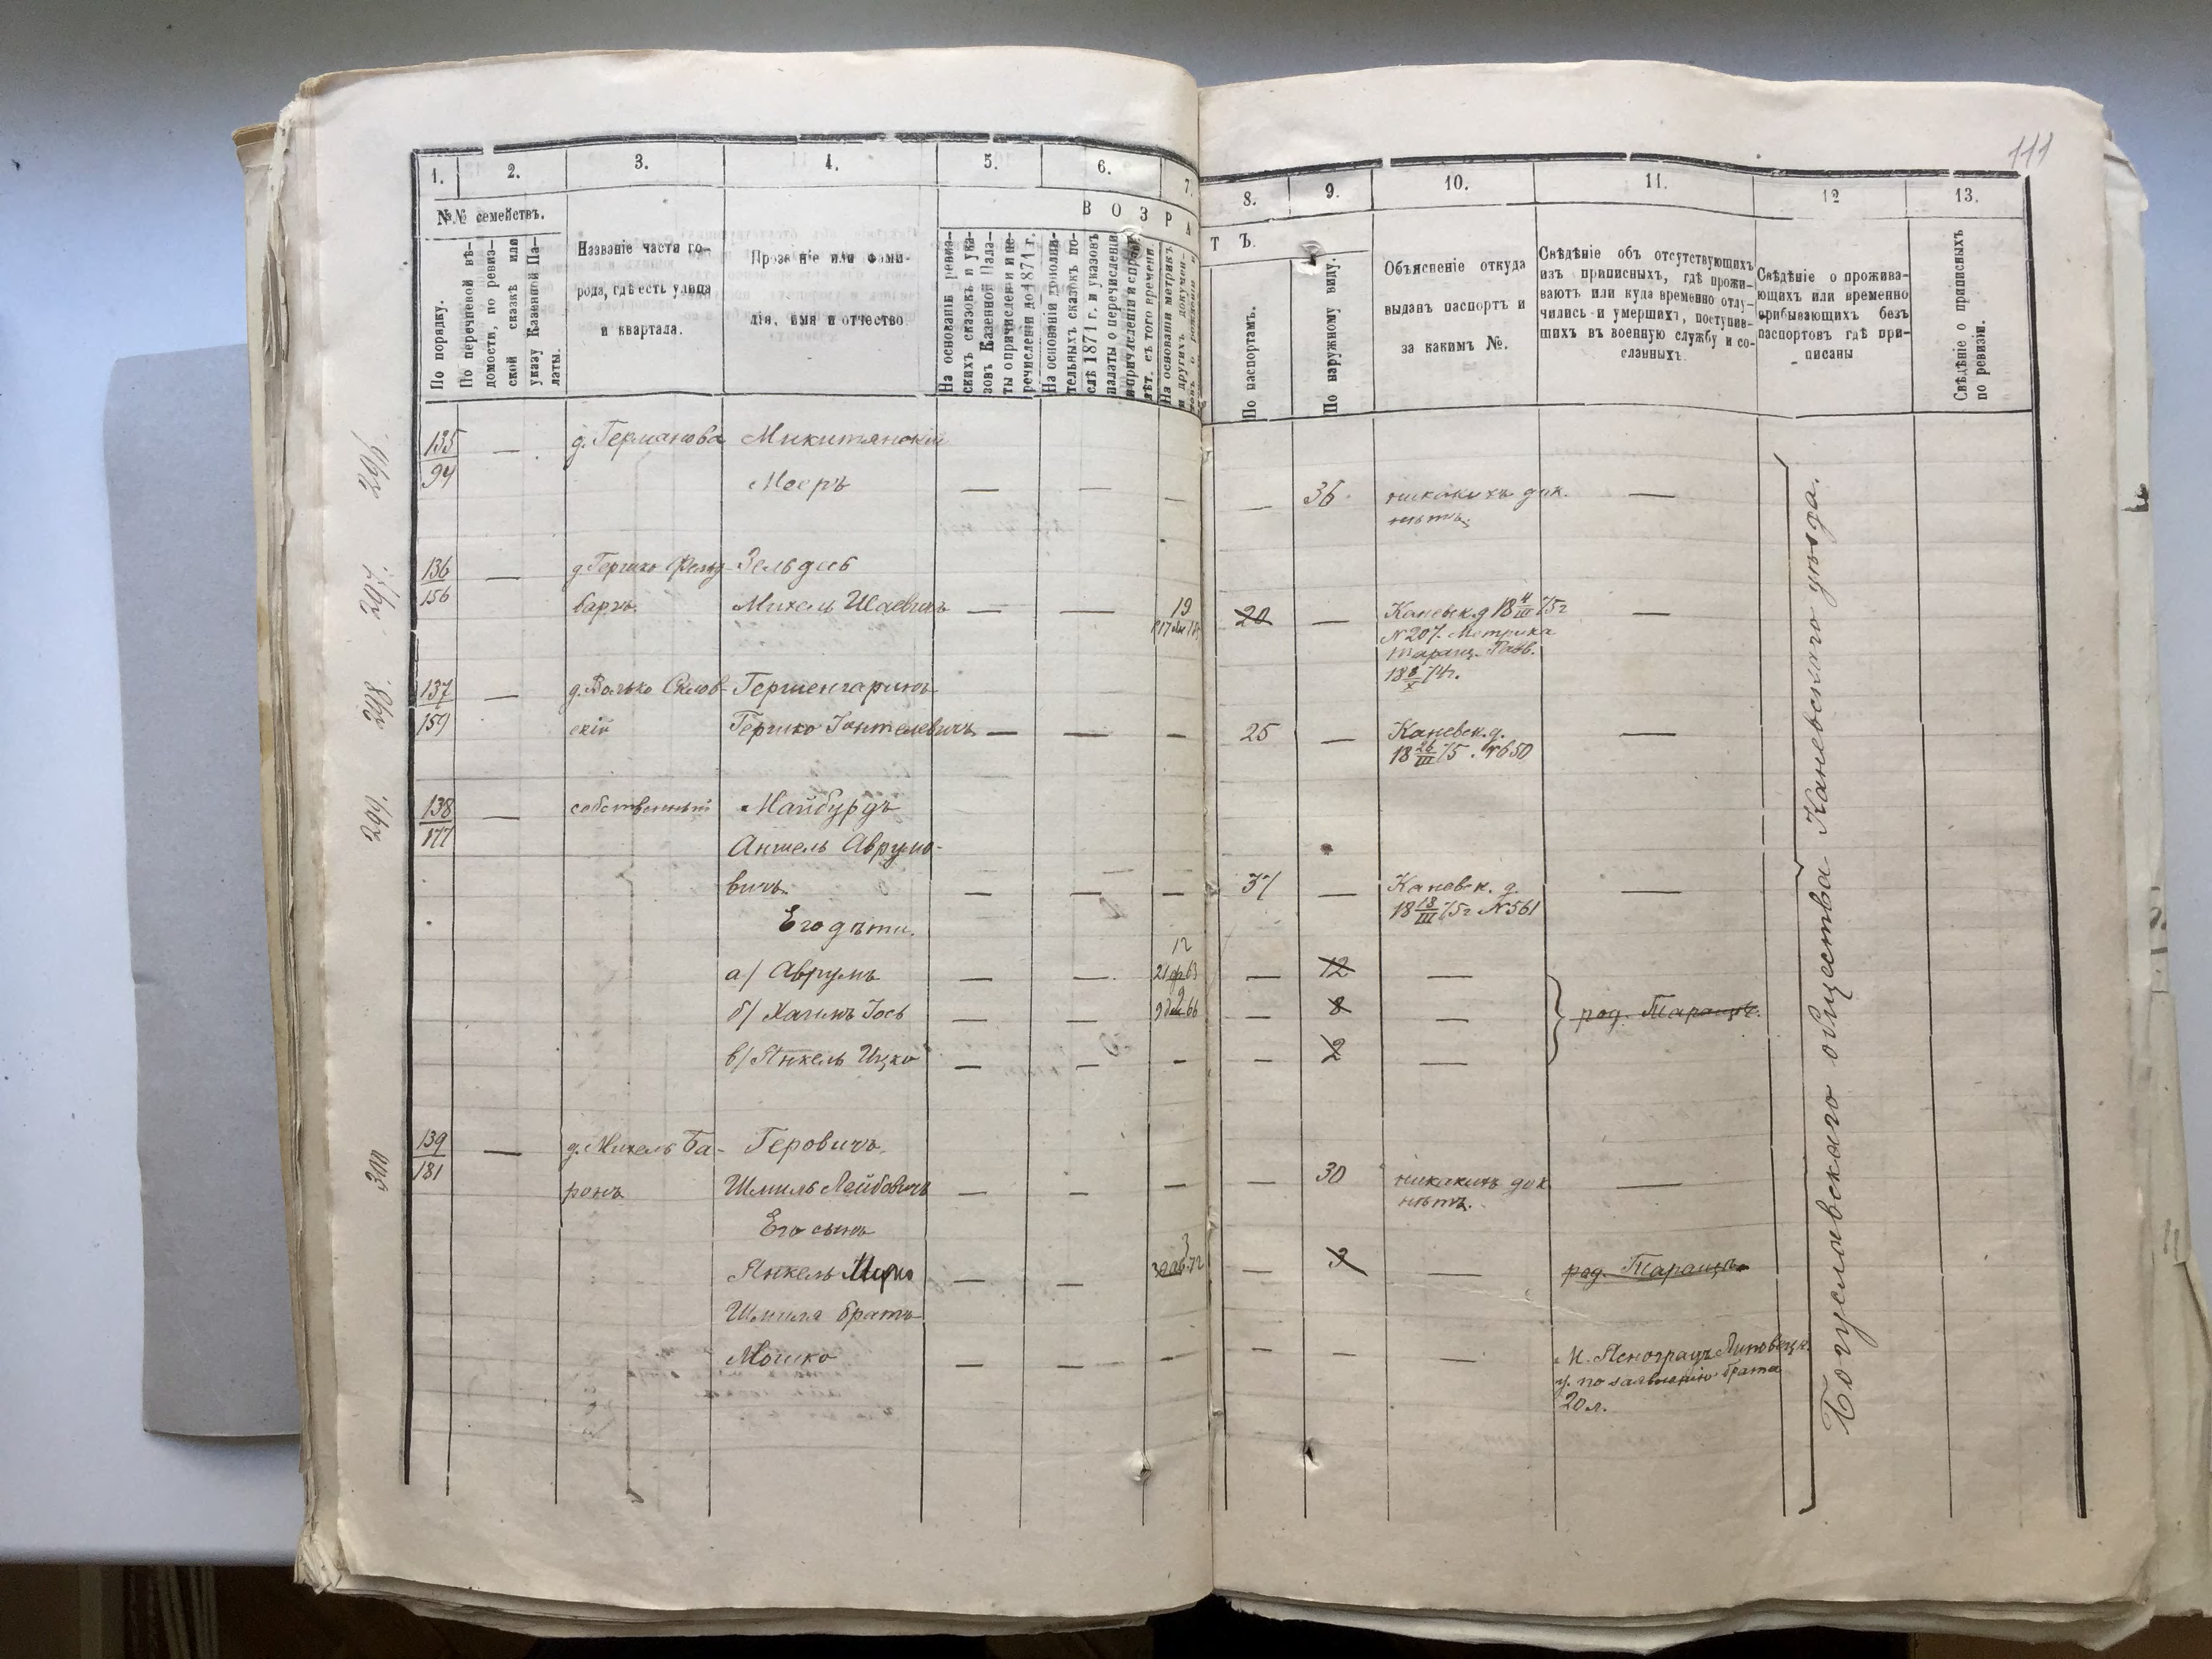 111
1.
2.
3.
4.
5.
6.
7.
8.
9.
10.
11.
12
13.
№№ семействъ.
По порядку.
По перечневой вѣ-
домости, по ревиз-
ской сказкѣ или
указу Казенной Па-
латы.
Названіе части го-
рода, гдѣ есть улица
и квартала.
Прозваніе или фами-
лія, имя и отчество
ВОЗРА
ТЪ.
На основаніи ревиз-
скихъ сказокъ и ука-
зовъ Казенной Пала-
ты о причисленіи и пе-
речисленіи до 1871 г.
На основаніи дополни-
тельныхъ сказокъ по-
слѣ 1871 г. и указовъ
палаты о перечисленіи
На основаніи метрикъ
и другихъ докумен-
По паспортамъ.
По наружному виду.
Объясненіе откуда
выданъ паспортъ и
за какимъ №.
Свѣдѣніе объ отсутствующихъ
изъ приписныхъ, гдѣ прожи-
ваютъ или куда временно отлу-
чились и умершихъ, поступив-
шихъ въ военную службу и со-
сланныхъ
Свѣдѣніе о прожива-
ющихъ или временно
прибывающихъ безъ
паспортовъ гдѣ при-
писаны
Свѣдѣніе о приписныхъ
по ревизіи.
296.
135
94
—
д. Германова
Микитянскій
Мееръ
— — — —
36
никакихъ док.
нѣтъ.
—
297.
136
156
—
д. Гершко Фельд-
баръ
Зельдисъ
Михель Шаевичъ
— —
19
20
—
Каневск. д 18 4/III 75 г
№ 207. Метрика
Таращ. Равв.
18 8/X 74 г.
—
298.
137
159
—
д. Волько Склов-
скій
Гершенгаринъ
Гершко Іонтелевичъ
— — —
25
—
Каневск. д.
18 26/III 75. № 650
—
299.
138
177
—
собственный
Майбурдъ
Аншель Аврумо-
вичъ
— — —
37
—
Каневск. д
18 18/III 75 г № 561
—
Его дѣти.
а/ Аврумъ
— —
12
21 ф 63
—
12
—
б/ Хаимъ Іось
— —
9
9 дек 66
—
8
—
род. Таращѣ.
в/ Янкель Ицко
— — — —
2
—
300
139
181
—
д. Михель Ба-
ронъ
Геровичъ
Шмиль Лейбовичъ
— — — —
30
никакихъ док
нѣтъ.
—
Его сынъ
Янкель
— —
3
—
3
—
род. Таращѣ.
Шмиля братъ
Мошко
— — — — — —
у. по заявленію брата
20 л.
Богуславскаго общества Каневскаго уѣзда.